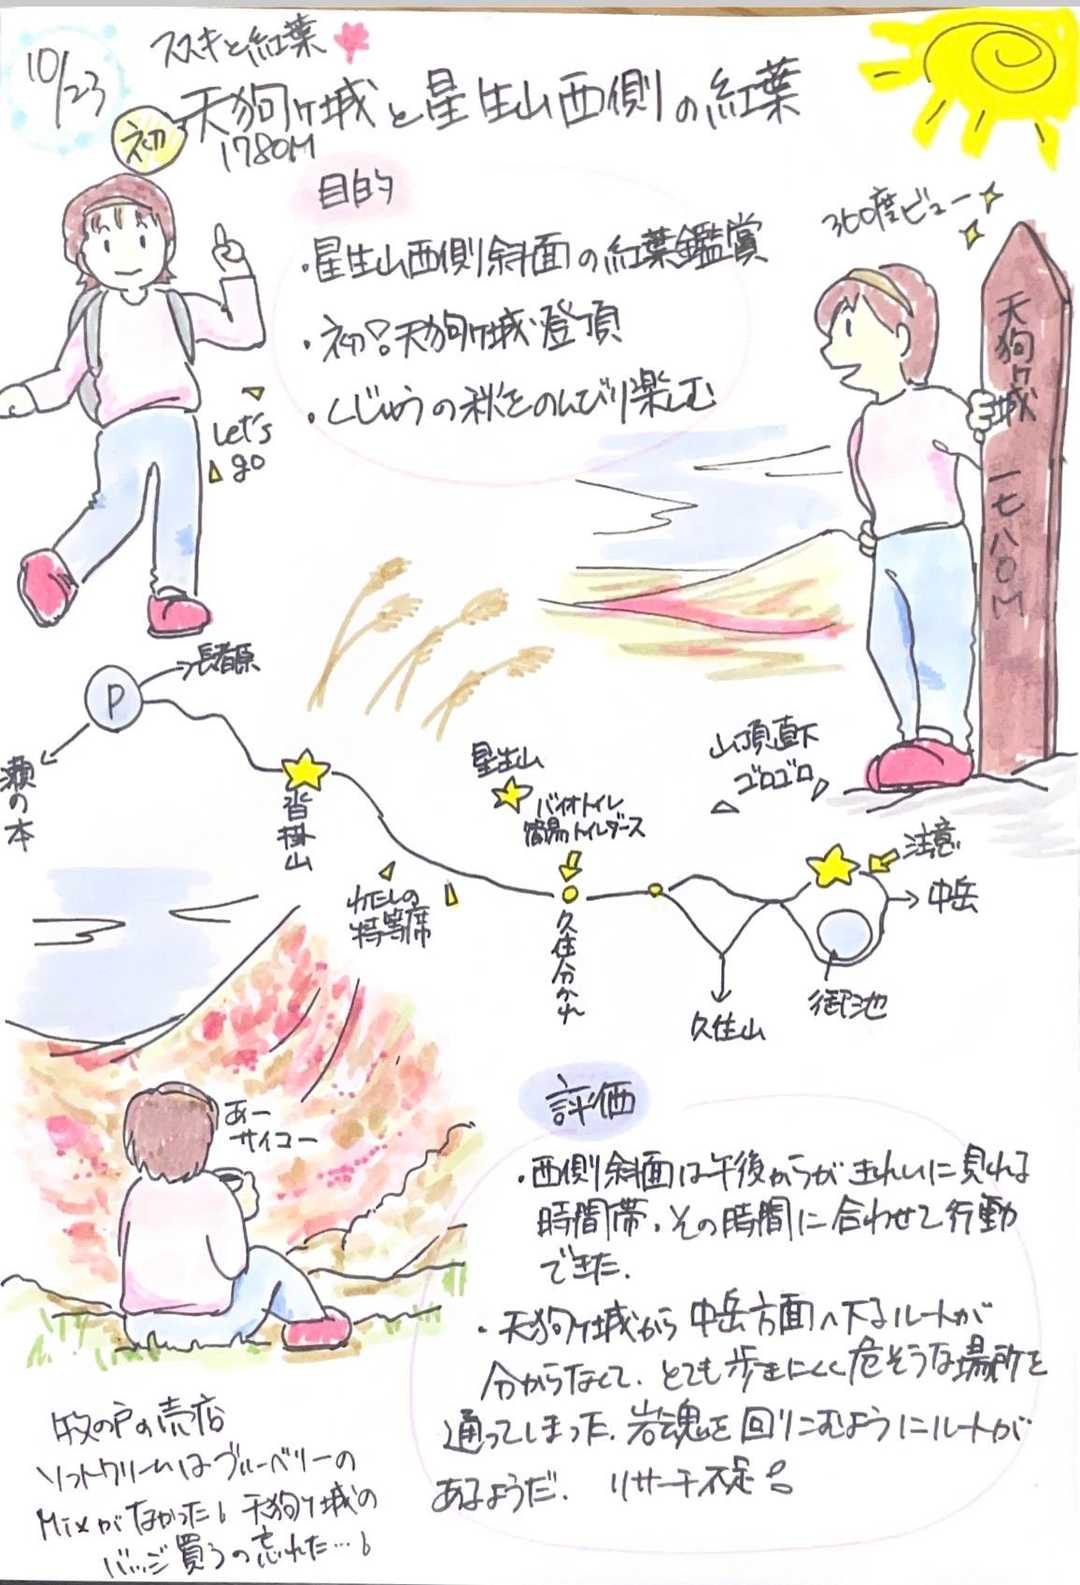 10/23
ススキと紅葉
初
天狗ヶ城と星生山西側の紅葉
1780M
目的
・星生山西側斜面の紅葉鑑賞
・初!天狗ヶ城登頂
・くじゅうの秋をのんびり楽しむ
Let's
go
360度ビュー
天狗ヶ城 一七八〇M
長者原
P
瀬の本
沓掛山
わたしの
特等席
星生山
バイオトイレ
簡易トイレブース
久住分かれ
山頂直下
ゴロゴロ
注意
中岳
御池
久住山
あー
サイコー
評価
・西側斜面は午後からがきれいに見れる
時間帯、その時間に合わせて行動
できた.
・天狗ヶ城から中岳方面へ下るルートが
分からなくて、とても歩きにくく危そうな場所を
通ってしまった.岩魂を回りこむようにルートが
あるようだ. リサーチ不足
牧の戸の売店
ソフトクリームはブルーベリーの
Mixがなかった 天狗ヶ城の
バッジ買うの忘れた…